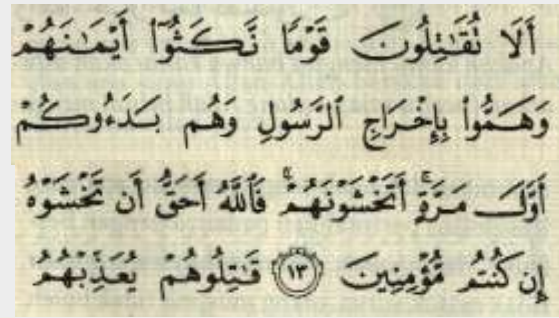 أَلَا تُقَٰتِلُونَ قَوْمًا نَّكَثُوٓا۟ أَيْمَٰنَهُمْ
وَهَمُّوا۟ بِإِخْرَاجِ ٱلرَّسُولِ وَهُم بَدَءُوكُمْ
أَوَّلَ مَرَّةٍ ۚ أَتَخْشَوْنَهُمْ ۚ فَٱللَّهُ أَحَقُّ أَن تَخْشَوْهُ
إِن كُنتُم مُّؤْمِنِينَ ﴿١٣﴾ قَٰتِلُوهُمْ يُعَذِّبْهُمُ